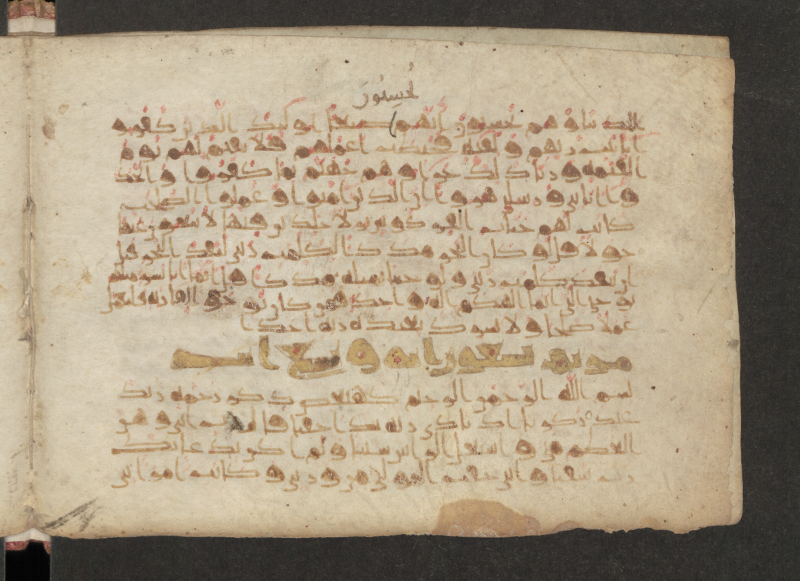 يحسنون
الدنيا وهم يحسبون انهم صنعا اولئك الذين كفروا
بايت ربهم ولقائه فحبطت اعملهم فلا نقيم لهم يوم
القيمة وزنا ذلك جزاوهم جهنم بما كفروا واتخذ
وا ايتي ورسلي هزوا ان الذين امنوا وعملوا الصلحت
كانت لهم جنت الفردوس نزلا خلدين فيها لا يبغون عنها
حولا قل لو كان البحر مددا لكلمت ربي لنفد البحر قبل
ان تنفد كلمت ربي ولو جئنا بمثله مددا قل انما انا بشر مثلكم
يوحى الي انما الهكم اله واحد فمن كان يرجوا لقا ربه فليعمل
عملا صلحا ولا يشرك بعبادة ربه احدا
مريم تسعون اية وتسع ايت
بسم الله الرحمن الرحيم كهيعص ذكر رحمت ربك
عبده زكريا اذ نادى ربه ندا خفيا قال رب اني وهن
العظم مني واشتعل الراس شيبا ولم اكن بدعائك
رب شقيا واني خفت المولي من وراي وكانت امراتي